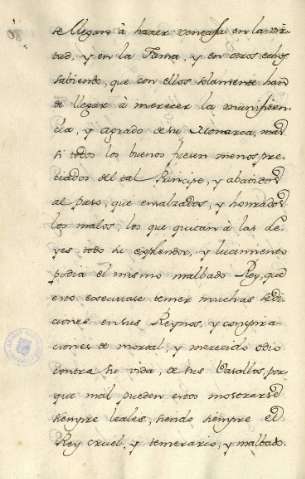 se llegan à hazer ventaja en la virtud
tud, y en la Fama, y en otros casos
sabiendo, que con ellos solamente han
de llegar à merecer la munificen
cia, y agrado de su Monarca, mas
si todos los buenos fuesen menos pre
ciados del tal Principe, y abandond.s
al paso, que ensalzados, y honrad.s
los malos, los que quitan à las Le
yes todo su esplendor, y
podia el mismo malbado Rey, que
en tener muchas sedi
ciones en sus Reynos, y conspira
ciones de mortal, y merecido odio
contra su vida, de sus Vasallos, por
que mal pueden estos mostrarse
siempre leales, siendo siempre el
Rey cruel, y temerario, y malbado.